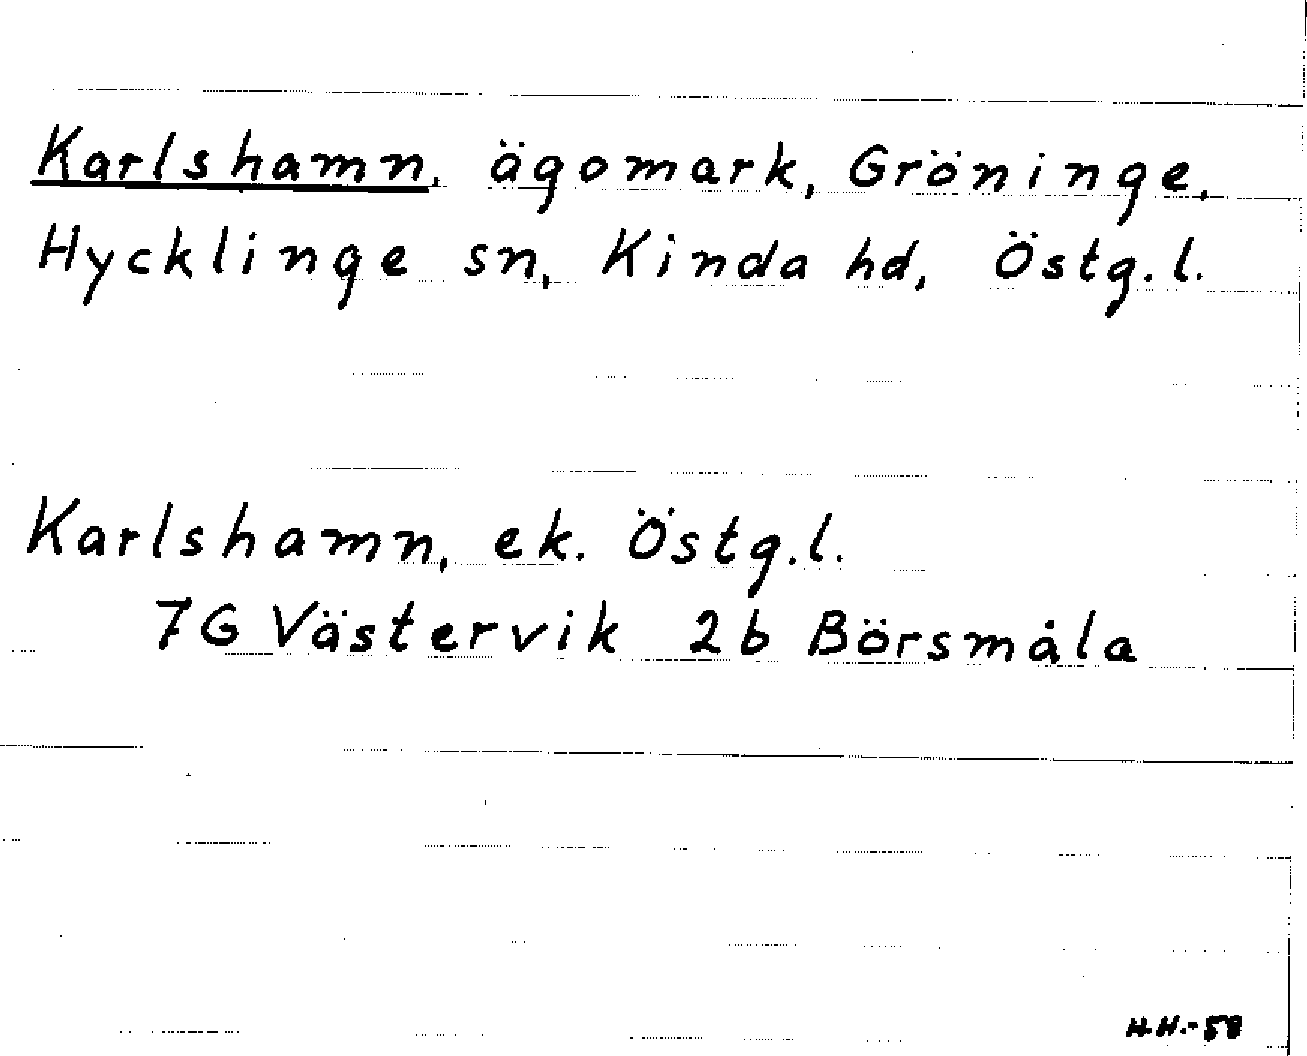 Karlshamn, ägomark, Gröninge,
Hycklinge sn, Kinda hd, Östg.l.
Karlshamn, ek. Östg.l.
7G Västervik 2b Börsmåla
H.H.-58